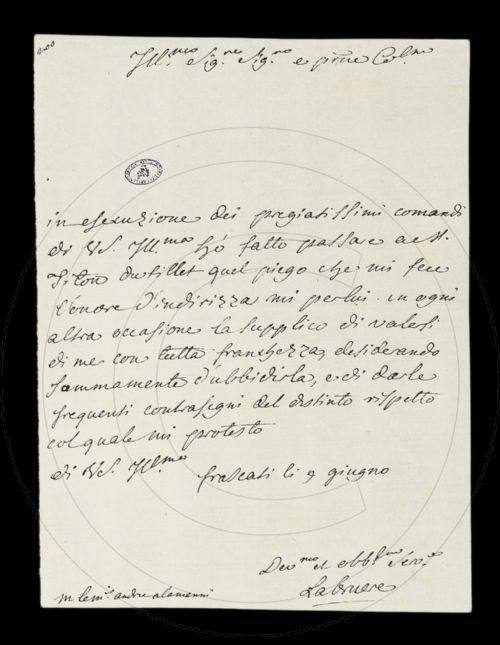 Ill.mo Sig.re Sig.re e prone Col.mo
in esecuzione dei pregiatissimi comandi
di VS. Ill.ma hò fatto passare a M.
Titon Dutillet quel piego che mi fece
l'onore d'indirizza mi per lui. in ogni
altra occasione la supplico di valersi
di me con tutta franchezza, desiderando
sommamente d'ubbidirla, e di darle
frequenti contrasegni del distinto rispetto
col quale mi protesto
di VS. Ill.ma
frascati li 9 giugno
Dev.mo et obbl.mo Serv.e
Labruere
andre alamanni